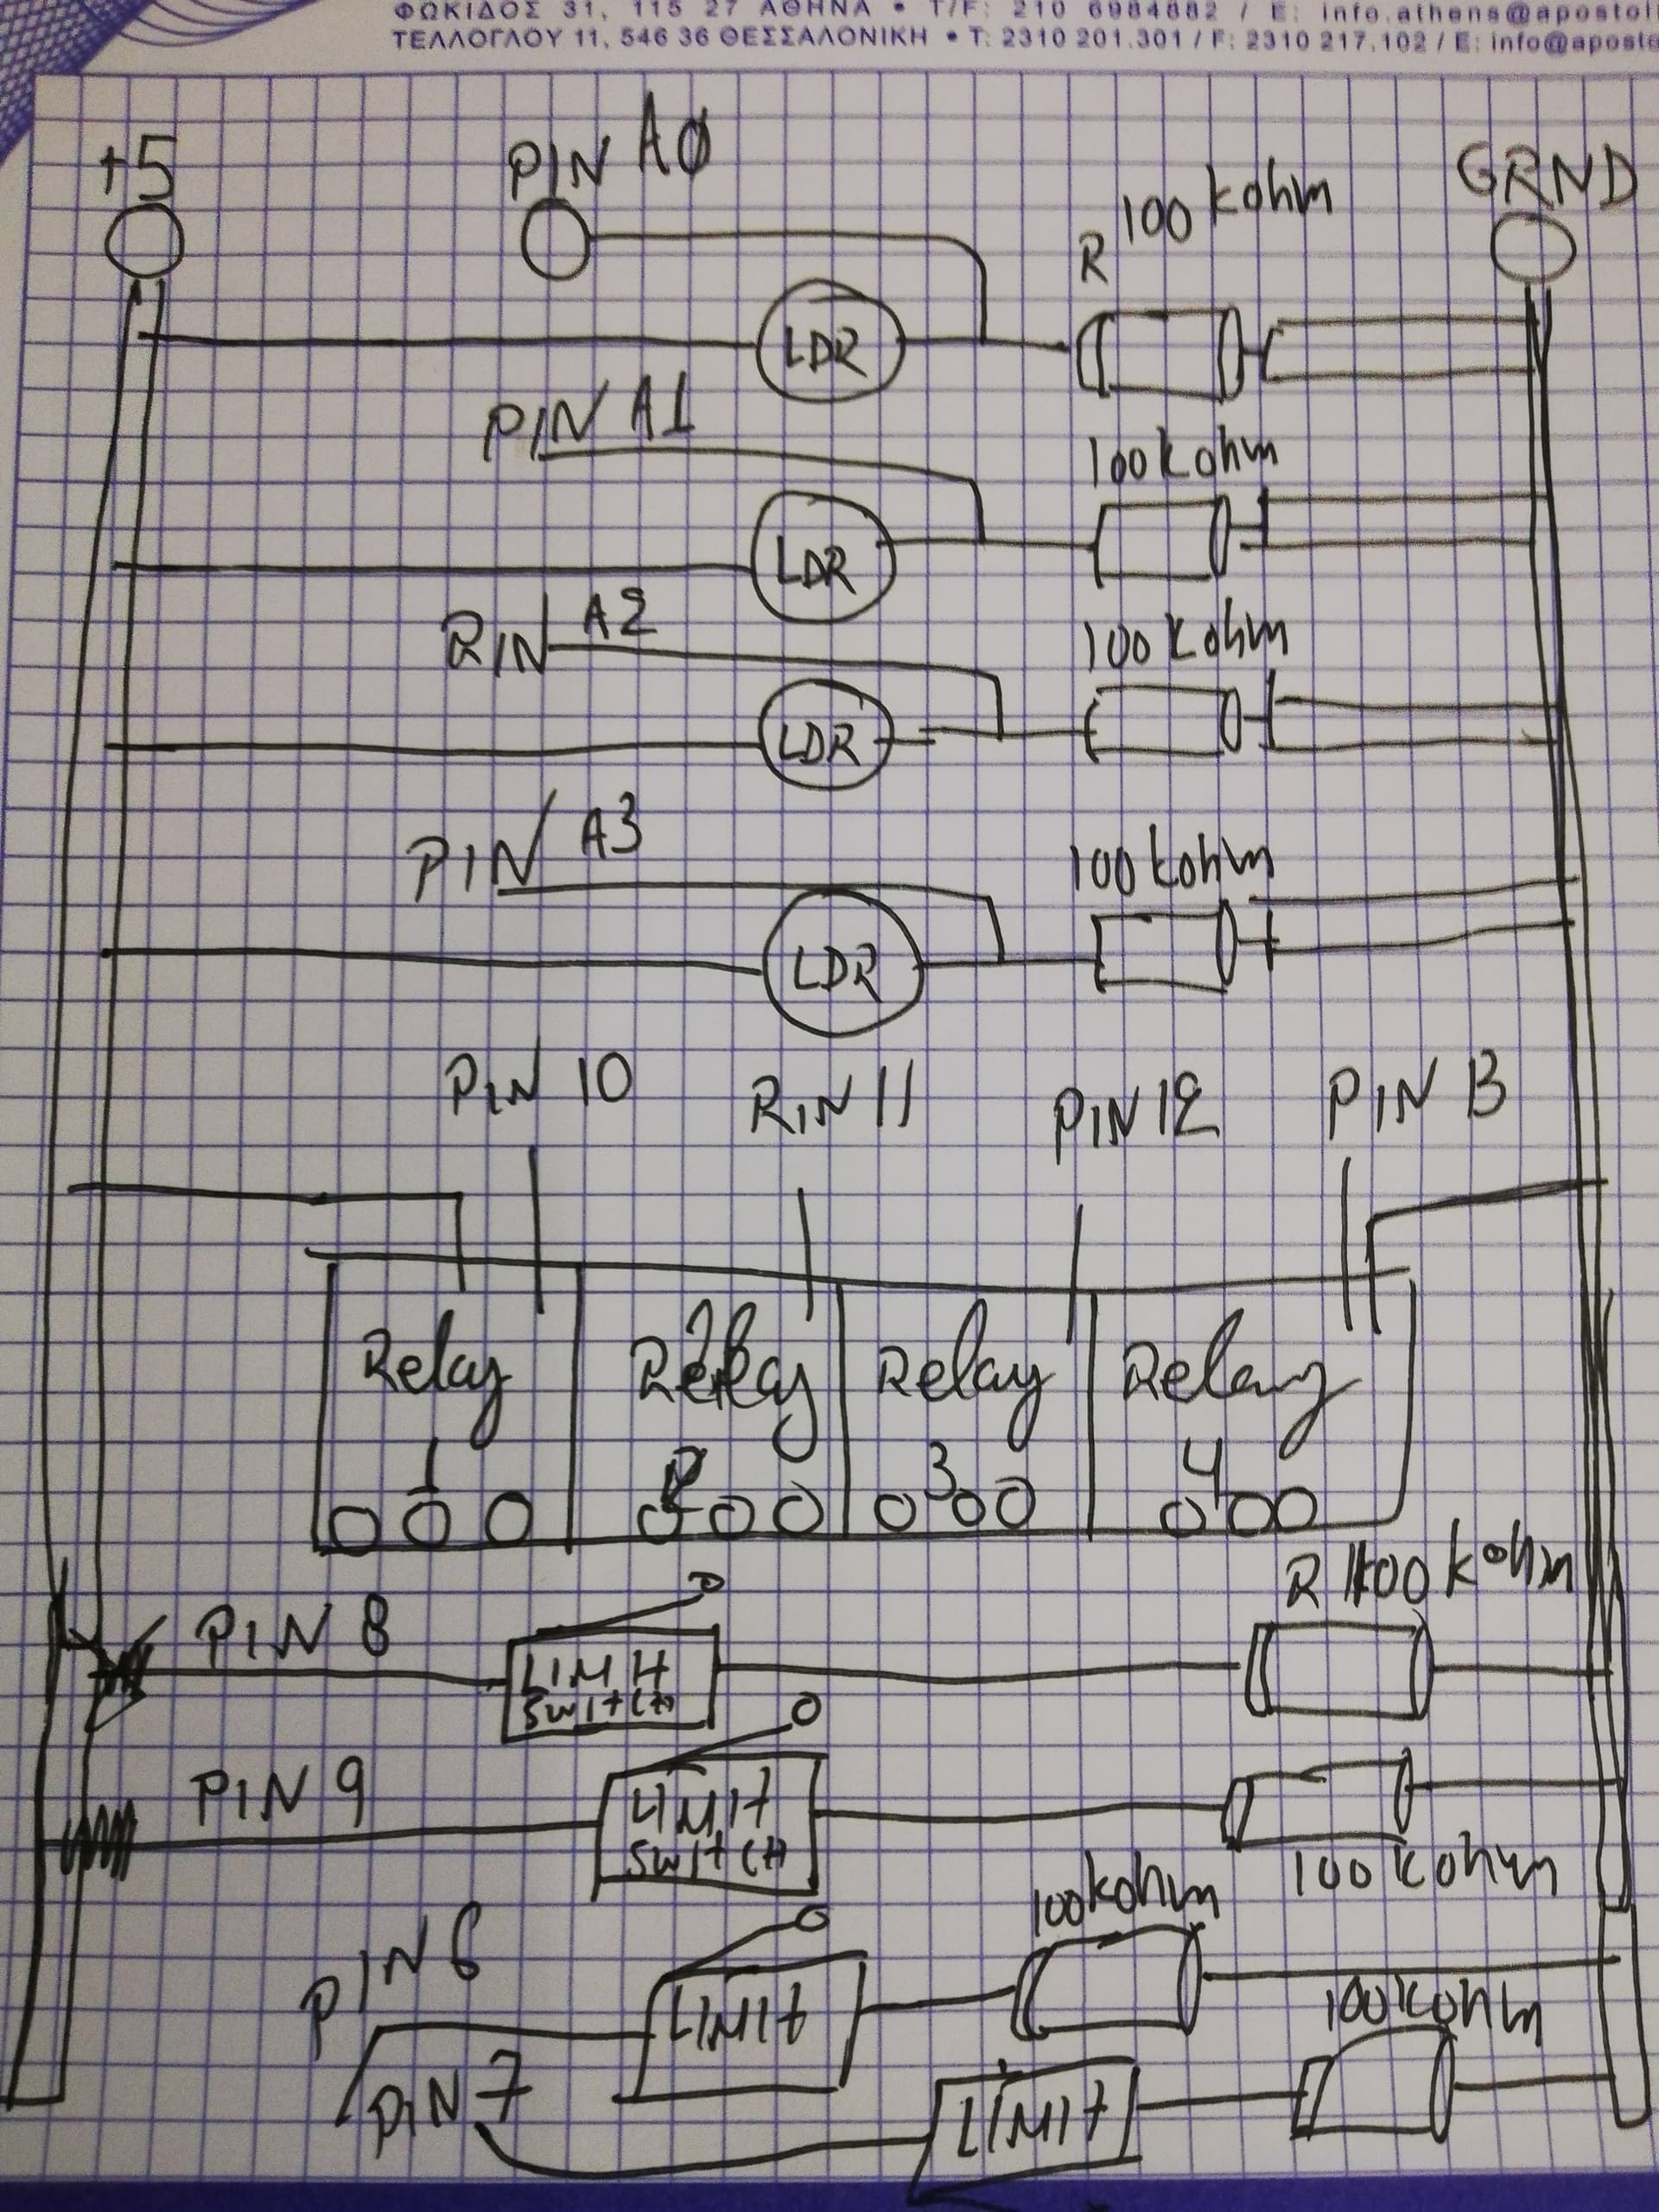 ΦΩΚΙΔΟΣ 31, 115 27 ΑΘΗΝΑ • T/F: 210 6984882 / E: info.athens@apostoli
ΤΕΛΛΟΓΛΟΥ 11, 546 36 ΘΕΣΣΑΛΟΝΙΚΗ • T: 2310 201.301 / F: 2310 217.102 / E: info@aposto
+5 PIN A0 R 100 kohm GRND
LDR
PIN A1 100 kohm
LDR
PIN A2 100 kohm
LDR
PIN A3 100 kohm
LDR
PIN 10 PIN 11 PIN 12 PIN 13
Relay Relay Relay Relay
1 2 3 4
R 100 kohm
PIN 8 LIMIT
SWITCH
PIN 9 LIMIT
SWITCH
100 kohm
100 kohm
PIN 6 LIMIT
100 kohm
PIN 7 LIMIT